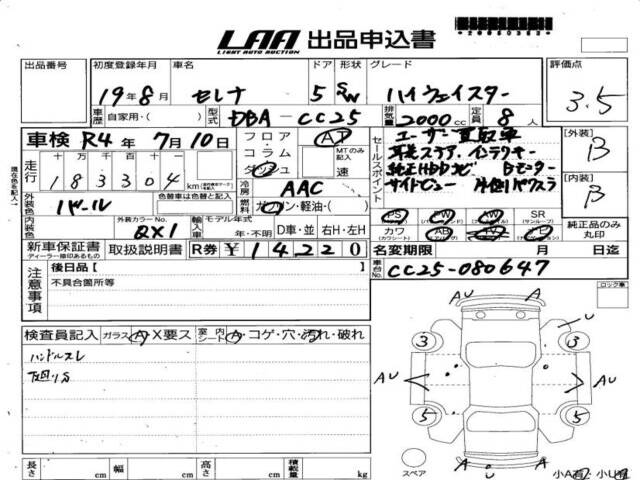 LAA 出品申込書
LIGHT AUTO AUCTION
出品番号 初度登録年月 車名 ドア 形状 グレード 評価点
19年8月 セレナ 5 SW ハイウェイスター 3.5
車歴 自家用・( ) 型式 DBA-CC25 排気量 2000cc 定員 8人
車検 R4年7月10日 フロア・コラム・ダッシュ AT MTのみ記入 速
セールスポイント ユーザー買取車
純正HDDナビ Bモーター
[外装] B
[内装] B
走行 十万 万 千 百 十 一
183304 km
冷房 AAC
外装色 パール 色替車は色替と記入
燃料 ガソリン・軽油・( )
PS PW AW SR
カワ AB TV 純正品のみ丸印
内装色 外装カラーNo. QX1 輸入車 モデル年式 年・不明 D車・並 右H・左H
新車保証書 取扱説明書 R券 ¥14220 名変期限 月 日迄
ディーラー捺印あるもの
車台No. CC25-080647
注意事項 後日品[ ]
不具合箇所等
ロック車
検査員記入 ガラス A・X要ス 室内シート A・コゲ・穴・汚れ・破れ
ハンドルスレ
AU A
U
3 3
AU AU
5 5
A U A
スペア
長さ cm 幅 cm 高さ cm 積載量 kg